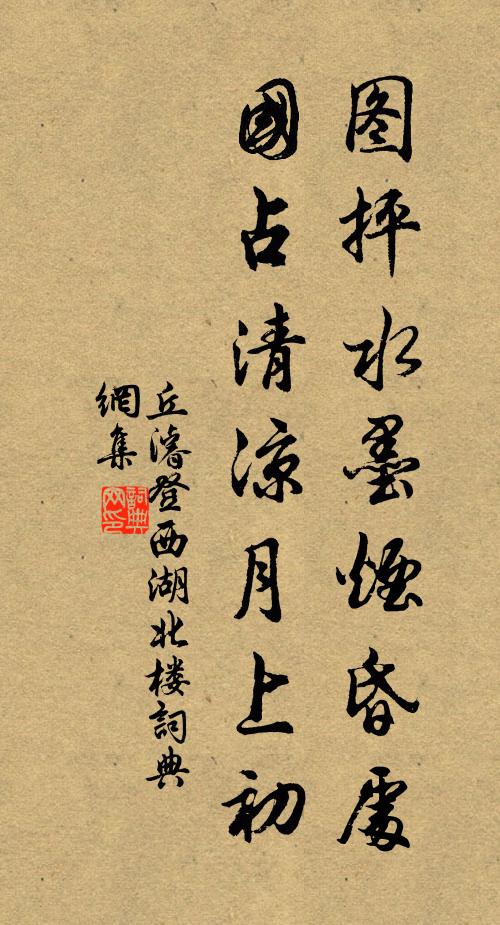 图抨水墨煙昏處
國占清凉月上初
丘濬登西湖北楼詞典
網集
詞典網印